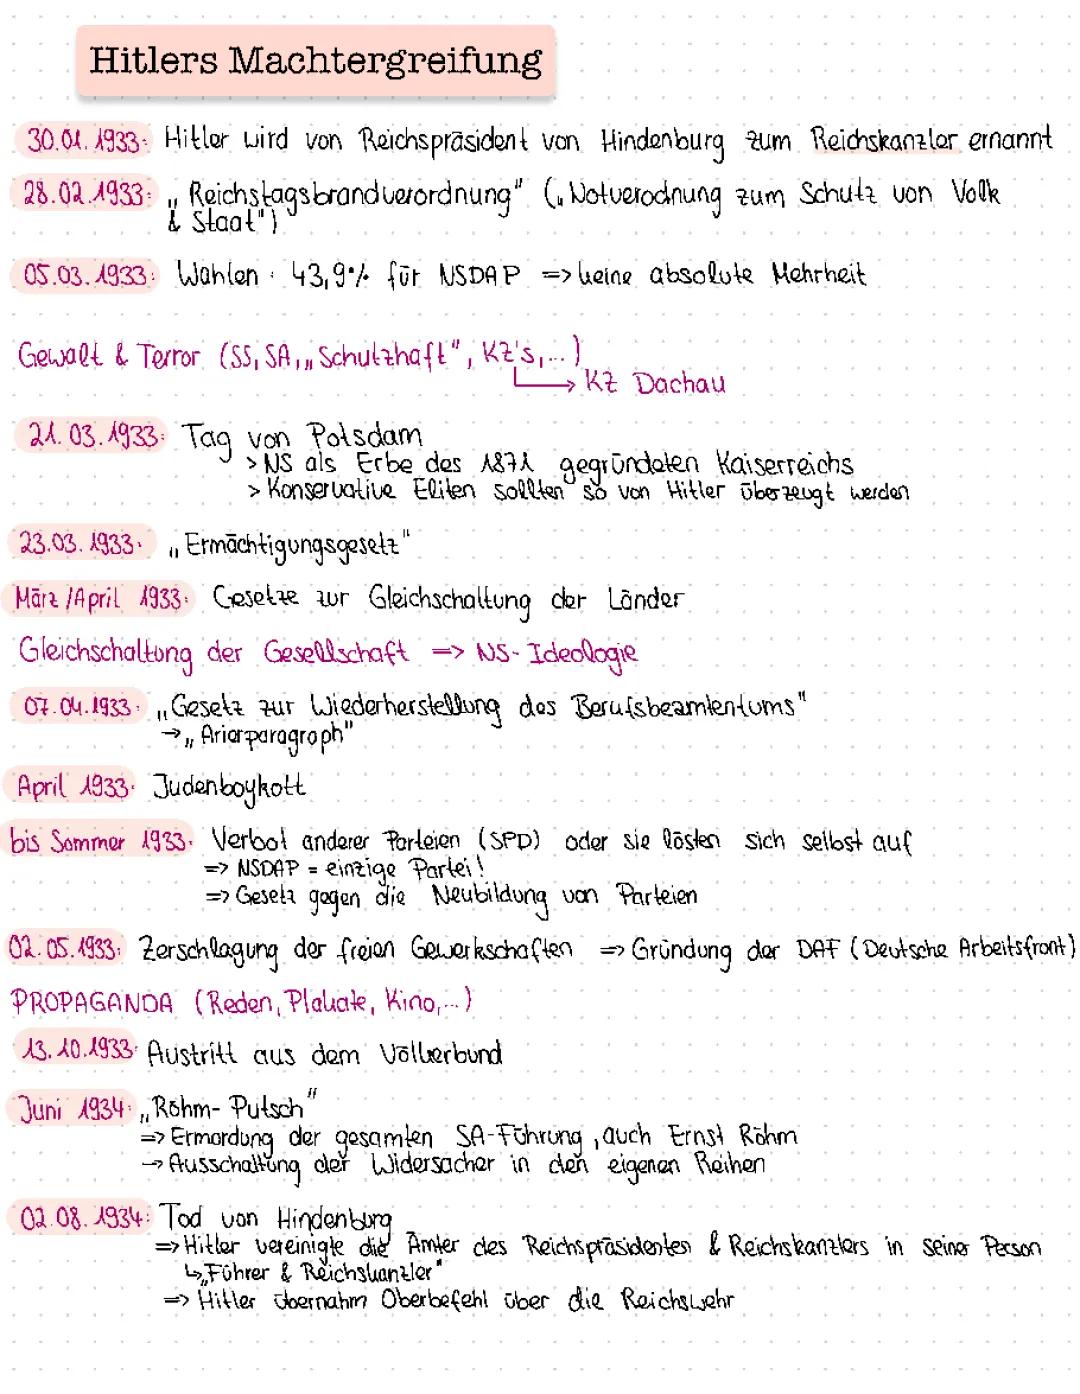 Hitlers Machtergreifung
30.01.1933: Hitler wird von Reichspräsident von Hindenburg zum Reichskanzler ernannt
28.02.1933: „Reichstagsbrandverordnung" („Notverodnung zum Schutz von Volk
& Staat")
05.03.1933: Wahlen: 43,9% für NSDAP => keine absolute Mehrheit
Gewalt & Terror (SS, SA, „Schutzhaft", KZ's,...)
→ KZ Dachau
21.03.1933: Tag von Potsdam
> NS als Erbe des 1871 gegründeten Kaiserreichs
> Konservative Eliten sollten so von Hitler überzeugt werden
23.03.1933: „Ermächtigungsgesetz"
März/April 1933: Gesetze zur Gleichschaltung der Länder
Gleichschaltung der Gesellschaft => NS-Ideologie
07.04.1933: „Gesetz zur Wiederherstellung des Berufsbeamtentums"
→ „Arierparagraph"
April 1933: Judenboykott
bis Sommer 1933: Verbot anderer Parteien (SPD) oder sie lösten sich selbst auf
=> NSDAP = einzige Partei!
=> Gesetz gegen die Neubildung von Parteien
02.05.1933: Zerschlagung der freien Gewerkschaften => Gründung der DAF (Deutsche Arbeitsfront)
PROPAGANDA (Reden, Plakate, Kino,...)
13.10.1933: Austritt aus dem Völkerbund
Juni 1934: „Röhm-Putsch"
=> Ermordung der gesamten SA-Führung, auch Ernst Röhm
→ Ausschaltung der Widersacher in den eigenen Reihen
02.08.1934: Tod von Hindenburg
=> Hitler vereinigte die Ämter des Reichspräsidenten & Reichskanzlers in seiner Person
↳ „Führer & Reichskanzler"
=> Hitler übernahm Oberbefehl über die Reichswehr